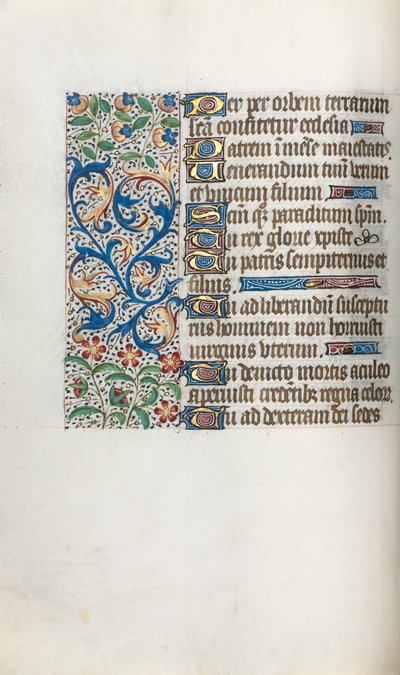 Ty per orbem terrarum
scã confitetur ecclesia
Patrem ĩmẽse maiestatis
Venerandum tuũ verum
et vnicum filium
Scm̃ qz paraclitum spm̃.
Tu rex glorie xpiste
Tu patris sempiternus et
filius.
Tu ad liberandũ susceptu
rus hominem non horruisti
virginis vterum.
Tu deuicto mortis aculeo
aperuisti credẽtibz regna celorz
Tu ad dexteram dei sedes